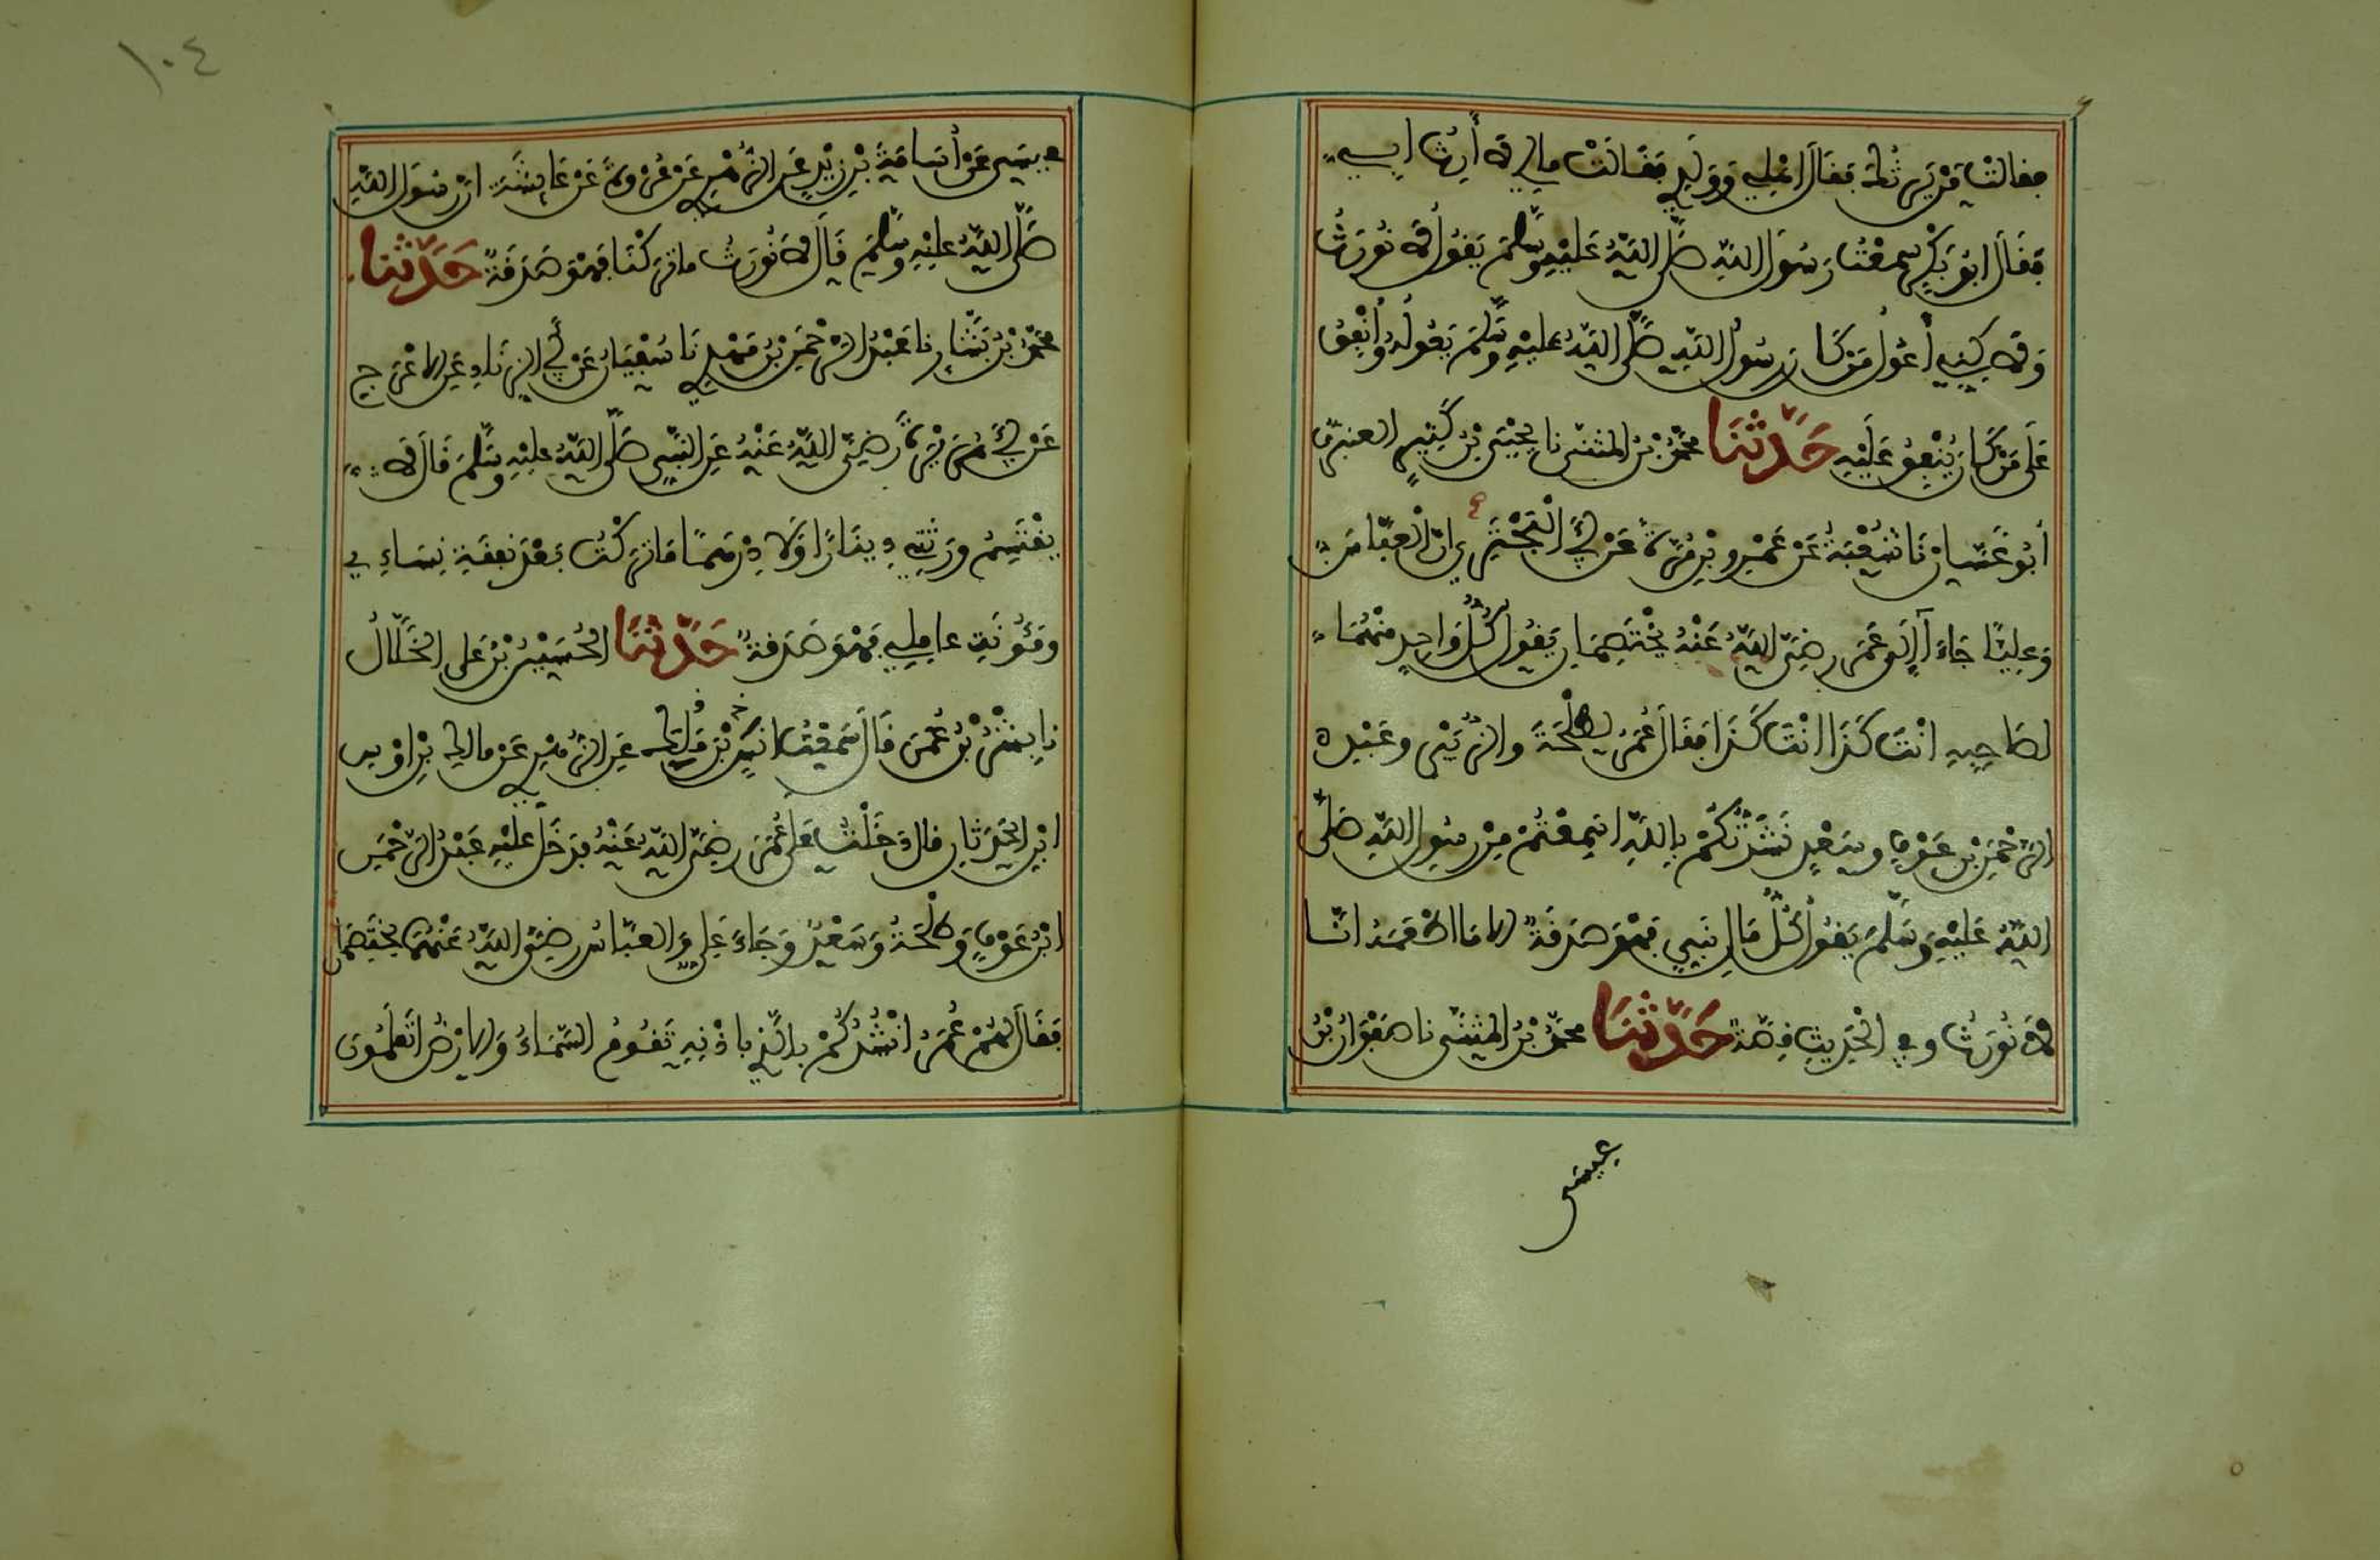 فقالت من يرثك فقال اهلي وولدي فقالت مالي لا أرث ابي
فقال ابو بكر سمعت رسول الله صلى الله عليه وسلم يقول لا نورث
ولاكني أعول من كان رسول الله صلى الله عليه وسلم يعوله وأنفق
على من كان ينفق عليه حدثنا محمد بن المثنى نا يحيى بن كثير العنبري
أبو غسان نا شعبة عن عمرو بن مرة عن أبي البختري ان العباس
وعليا جاءا إلى عمر رضي الله عنه يختصمان يقول كل واحد منهما
لصاحبه انت كذا انت كذا فقال عمر لطلحة والزبير وعبد
الرحمن بن عوف وسعد نشدتكم بالله اسمعتم من رسول الله صلى
الله عليه وسلم يقول كل مال نبي فهو صدقة الا ما اطعمه انا
لا نورث وفي الحديث قصة حدثنا محمد بن المثنى نا صفوان بن
عيسى
١٠٤
عيسى عن أسامة بن زيد عن الزهري عن عروة عن عايشة ان رسول الله
صلى الله عليه وسلم قال لا نورث ما تركنا فهو صدقة حدثنا
محمد بن بشار نا عبد الرحمن بن مهدي نا سفيان عن أبي الزناد عن الاعرج
عن أبي هريرة رضي الله عنه عن النبي صلى الله عليه وسلم قال لا
يقتسم ورثتي دينارا ولا درهما ما تركت بعد نفقة نساءي
ومؤنة عاملي فهو صدقة حدثنا الحسين بن علي الخلال
نا بشر بن عمر قال سمعت انس بن ملك عن الزهري عن مالك بن اوس
ابن الحدثان قال دخلت على عمر رضي الله عنه فدخل عليه عبد الرحمن
ابن عوف وطلحة وسعد وجاء علي والعباس رضي الله عنهما يختصمان
فقال لهم عمر انشدكم بالذي باذنه تقوم السماء والارض اتعلمون